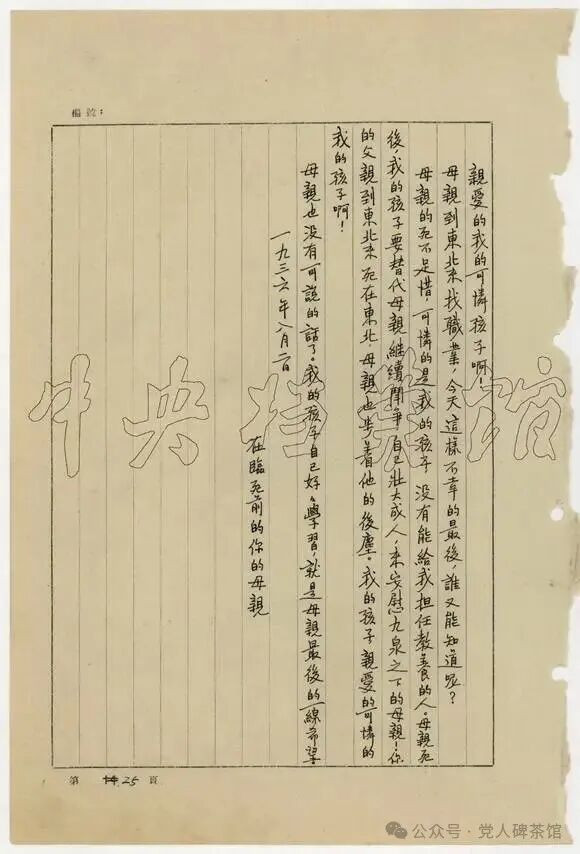 編號：
親愛的我的可憐孩子啊！
母親到東北來找職業，今天這樣不幸的最後，誰又能知道呢？
母親的死不足惜，可憐的是我的孩子，没有能給我担任教養的人。母親死
後，我的孩子要替代母親繼續鬥爭，自己壯大成人，來安慰九泉之下的母親！你
的父親到東北來死在東北，母親也步着他的後塵。我的孩子，親愛的可憐的
我的孩子啊！
母親也没有可說的話了。我的孩子自己好々學習，就是母親最後的一線希望
一九三六年八月二日
在臨死前的你的母親
中央档案馆
第 25 頁
公众号·党人碑茶馆